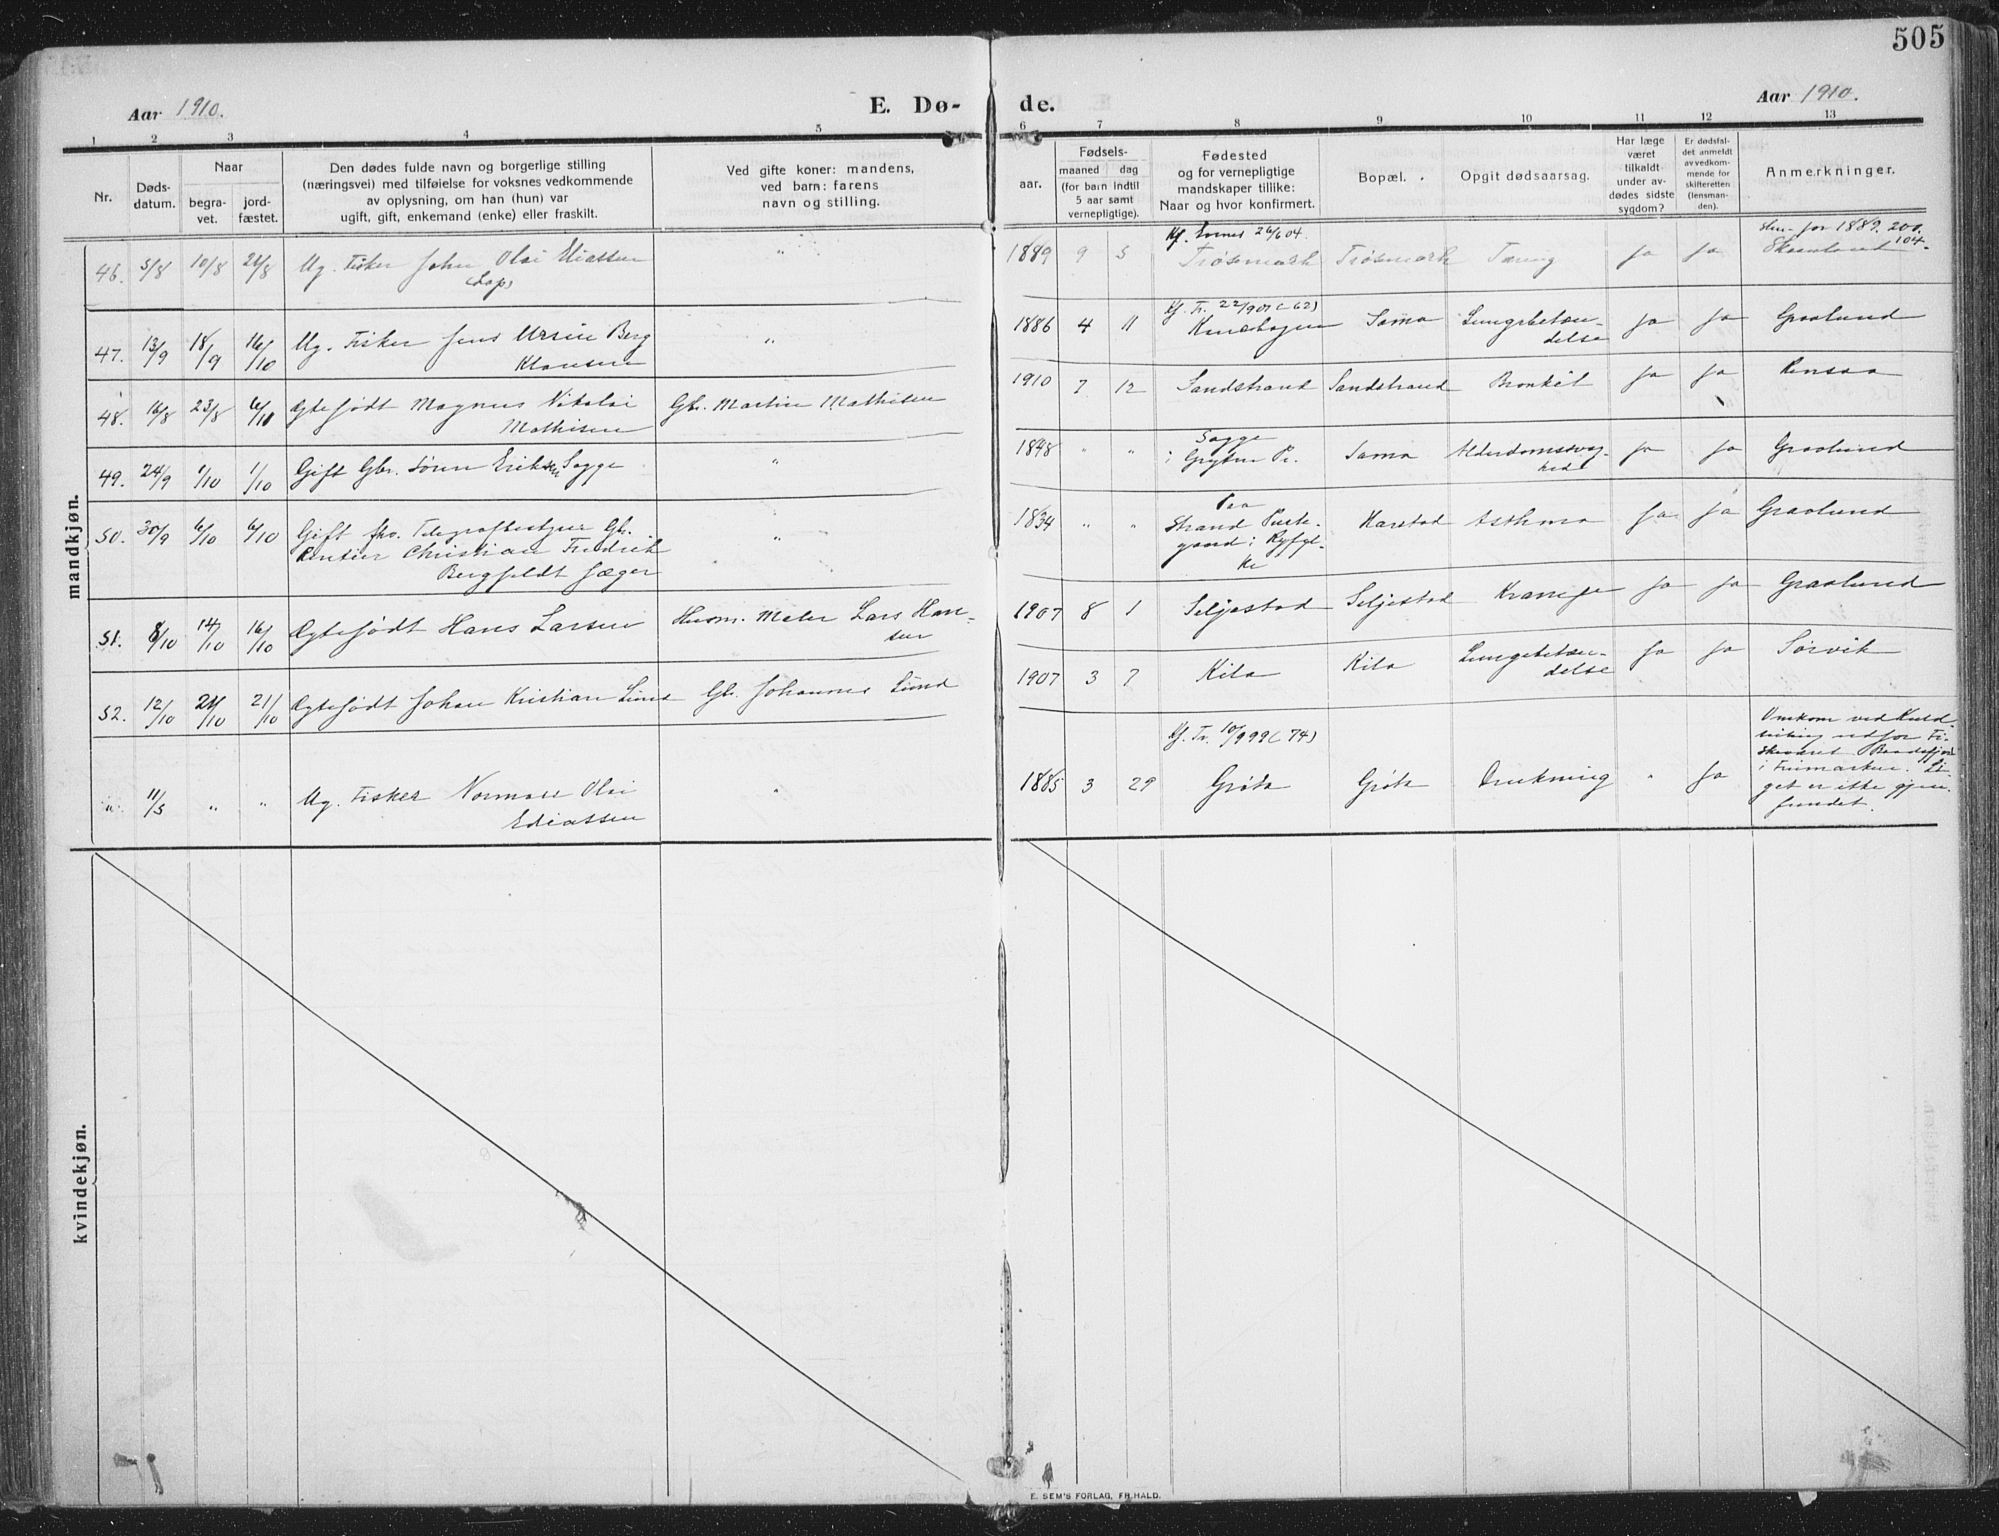 505
Aar 1910.
E. Dø- de.
Aar 1910.
1 2 3 4 5 6 7 8 9 10 11 12 13
Nr.
Døds-
datum.
Naar
begra-
vet.
jord-
fæstet.
Den dødes fulde navn og borgerlige stilling
(næringsvei) med tilføielse for voksnes vedkommende
av oplysning, om han (hun) var
ugift, gift, enkemand (enke) eller fraskilt.
Ved gifte koner: mandens,
ved barn: farens
navn og stilling.
Fødsels-
aar.
maaned dag
(for barn indtil
5 aar samt
vernepligtige).
Fødested
og for vernepligtige
mandskaper tillike:
Naar og hvor konfirmert.
Bopæl.
Opgit dødsaarsag.
Har læge
været
tilkaldt
under av-
dødes sidste
sygdom?
Er dødsfal-
det anmeldt
av vedkom-
mende for
skifteretten
(lensman-
den).
Anmerkninger.
mandkjøn.
46. 5/8 10/8 21/8 Ug. Fisker John Olai Eliassen
(Lap)
" 1889 9 5
Kf. Evenes 26/6 04.
Trøsemark Trøsemark Tæring Ja Ja
for 1889. 200.
Skaanland 104.
47. 13/9 18/9 16/10 Ug. Fisker Jens Ursin Berg
Klausen
" 1886 4 11
Kf. Tr. 22/9 01 (62)
Sama Lungebetæn-
delse
Ja Ja Graalund
48. 16/8 23/8 6/10 Ægtefødt Magnus Nikolai
Mathisen
Gbr. Martin Mathisen
1910 7 12 Sandstrand Sandstrand Bronkit Ja Ja Rensaa
49. 24/9 1/10 1/10 Gift Gbr. Søren Eriksen Sagge
" 1848 " "
Sagge
i Grytten Pr.
Sama Alderdomssvag-
hed
Ja Ja Graalund
50. 30/9 6/10 6/10 Gift fhv. Telegrafbestyrer Gbr.
Rentier Christian Fredrik
Bergfeldt Jæger
" 1834 " "
Paa
Strand Præste-
gaard i Ryfyl-
ke
Harstad Asthma Ja Ja Graalund
51. 8/10 14/10 16/10 Ægtefødt Hans Larsen
Husm. Maler Lars Han-
sen
1907 8 1 Seljestad Seljestad Krampe Ja Ja Graalund
52. 12/10 21/10 21/10 Ægtefødt Johan Kristian Lund
Gbr. Johannes Lund
1907 3 7 Kila Kila Lungebetæn-
delse
Ja Ja Sørvik
" 11/5 " " Ug. Fisker Norman Olai
Ediassen
" 1885 3 29
Kf. Tr. 10/9 99 (74)
Grøta Grøta Drukning " Ja
Omkom ved Kuld-
seiling udfor Fi-
skeværet Baadsfjord
i Finmarken. Li-
get er ikke gjen-
fundet.
kvindekjøn.
E. SEM'S FORLAG, FR.HALD.